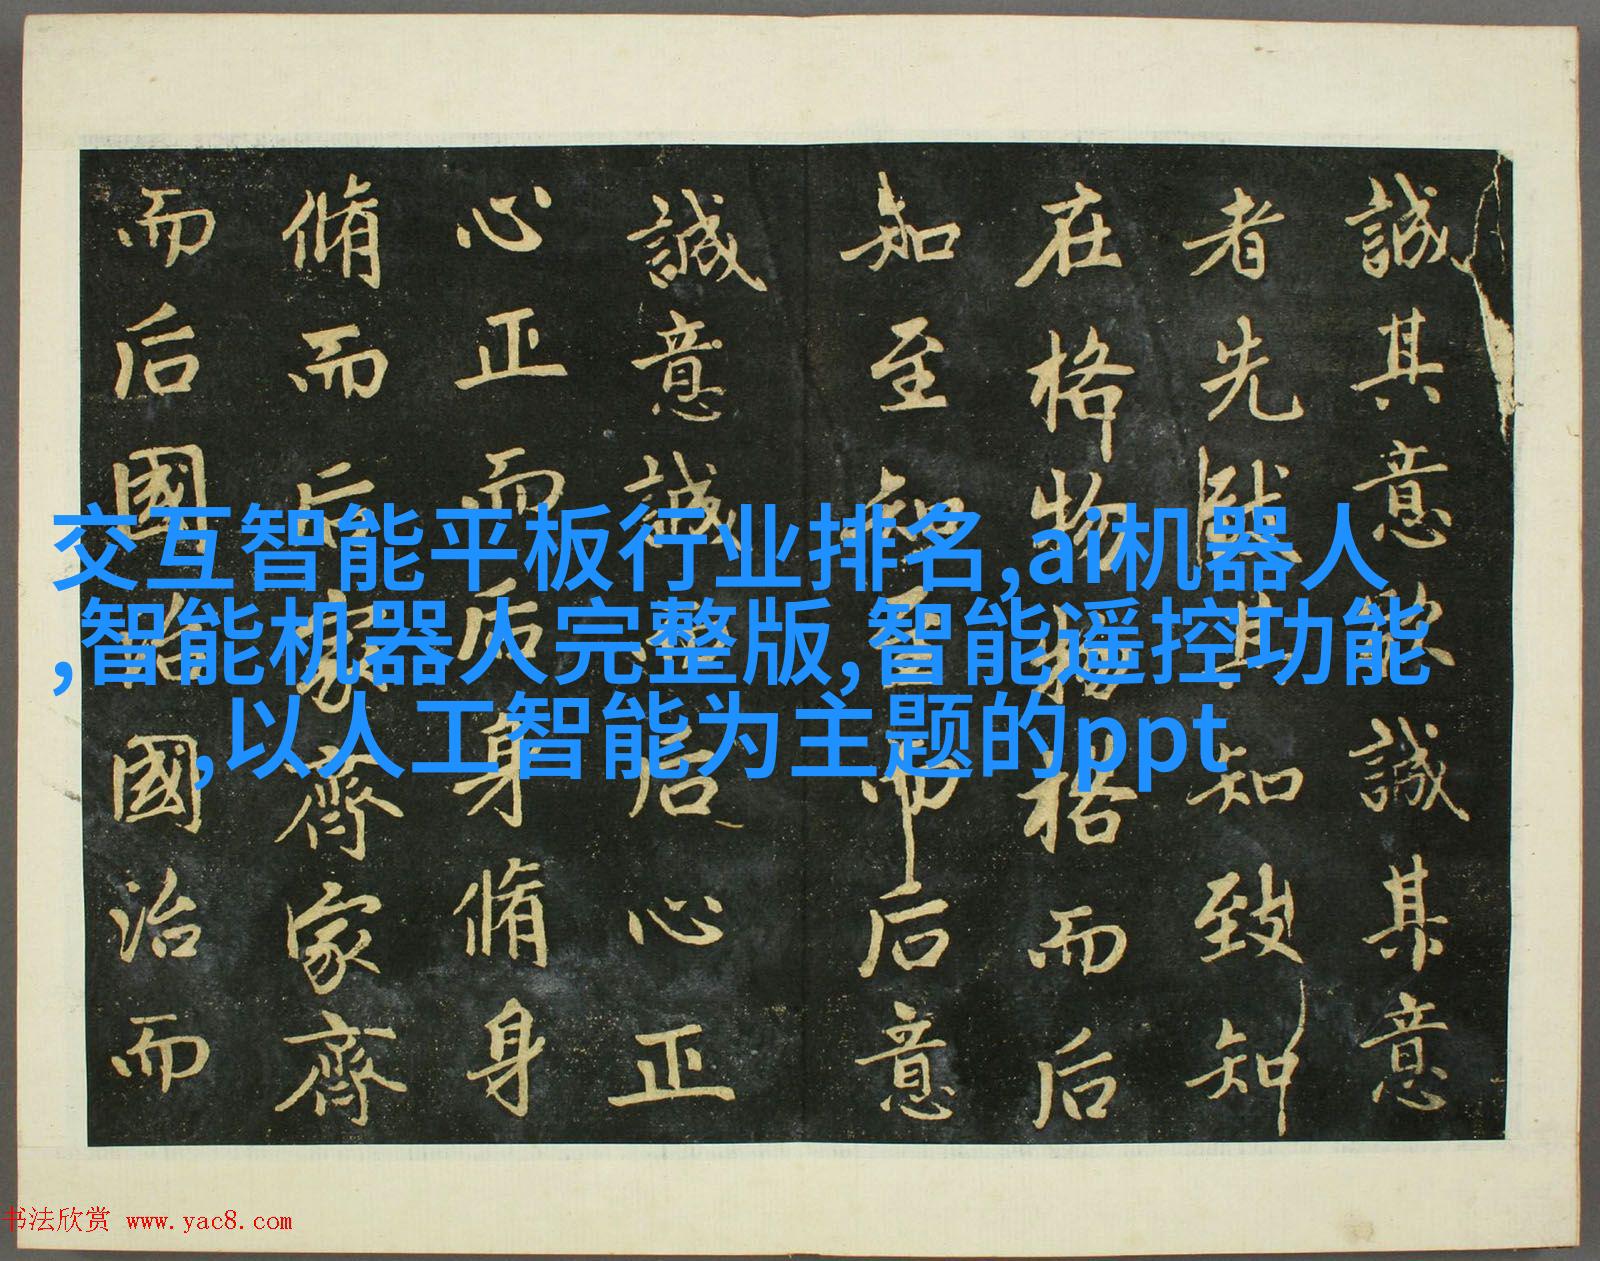 誠其意欲誠其意
者先致其知致知
在格物物格而后
知至知至而后意
誠意誠而后心正
心正而后身脩身
脩而后家齊家齊
而后國治國治而
交互智能平板行业排名,ai机器人
,智能机器人完整版,智能遥控功能
,以人工智能为主题的ppt
书法欣赏 www.yac8.com